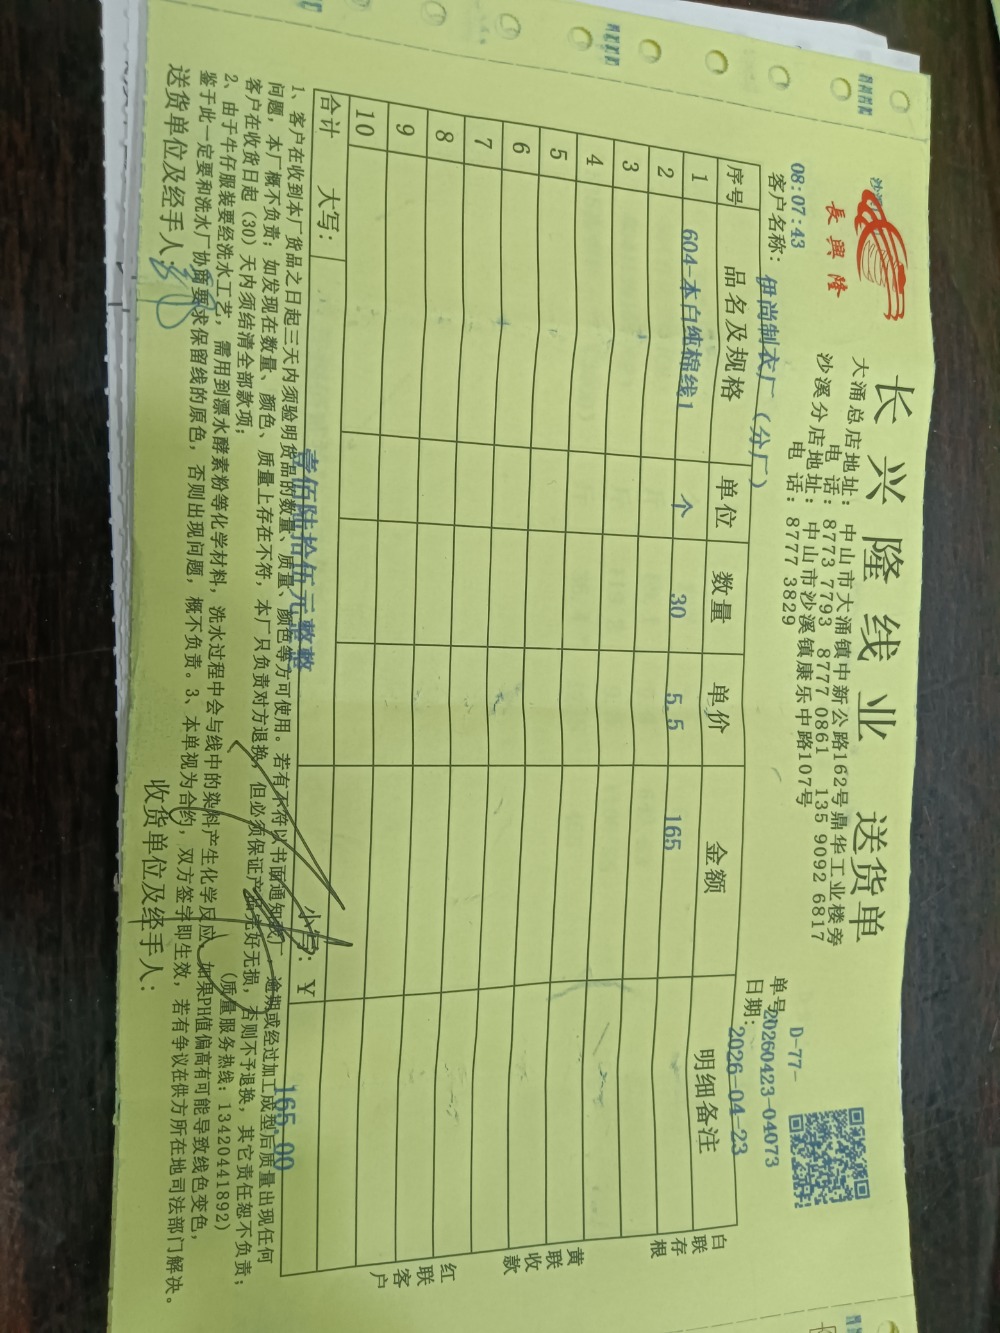 長興隆
长兴隆线业 送货单
大涌总店地址：中山市大涌镇中新公路162号鼎华工业楼旁
电 话：8773 7793 8777 0861 135 9092 6817
沙溪分店地址：中山市沙溪镇康乐中路107号
电 话：8777 3829
D-77-
08:07:43
单号：20260423-04073
客户名称：伊尚制衣厂（分厂）
日期：2026-04-23
序号 品名及规格 单位 数量 单价 金额 明细备注
1 604-本白纯棉线1 个 30 5.5 165
2
3
4
5
6
7
8
9
10
合计 大写：壹佰陆拾伍元整 小写：￥165.00
白联存根
黄联收款
红联客户
1、客户在收到本厂货品之日起三天内须验明货品的数量、质量、颜色等方可使用。若有不符以书面通知我厂，逾期或经过加工成型后质量出现任何
问题，本厂概不负责；如发现在数量、颜色、质量上存在不符，本厂只负责对方退换，但必须保证产品完好无损，否则不予退换，其它责任恕不负责；
客户在收货日起（30）天内须结清全部款项；（质量服务热线：13420441892）
2、由于牛仔服装要经洗水工艺，需用到漂水酵素粉等化学材料，洗水过程中会与线中的染料产生化学反应，如果PH值偏高有可能导致线色变色，
鉴于此一定要和洗水厂协商要求保留线的原色，否则出现问题，概不负责。3、本单视为合约，双方签字即生效，若有争议在供方所在地司法部门解决。
送货单位及经手人： 收货单位及经手人：